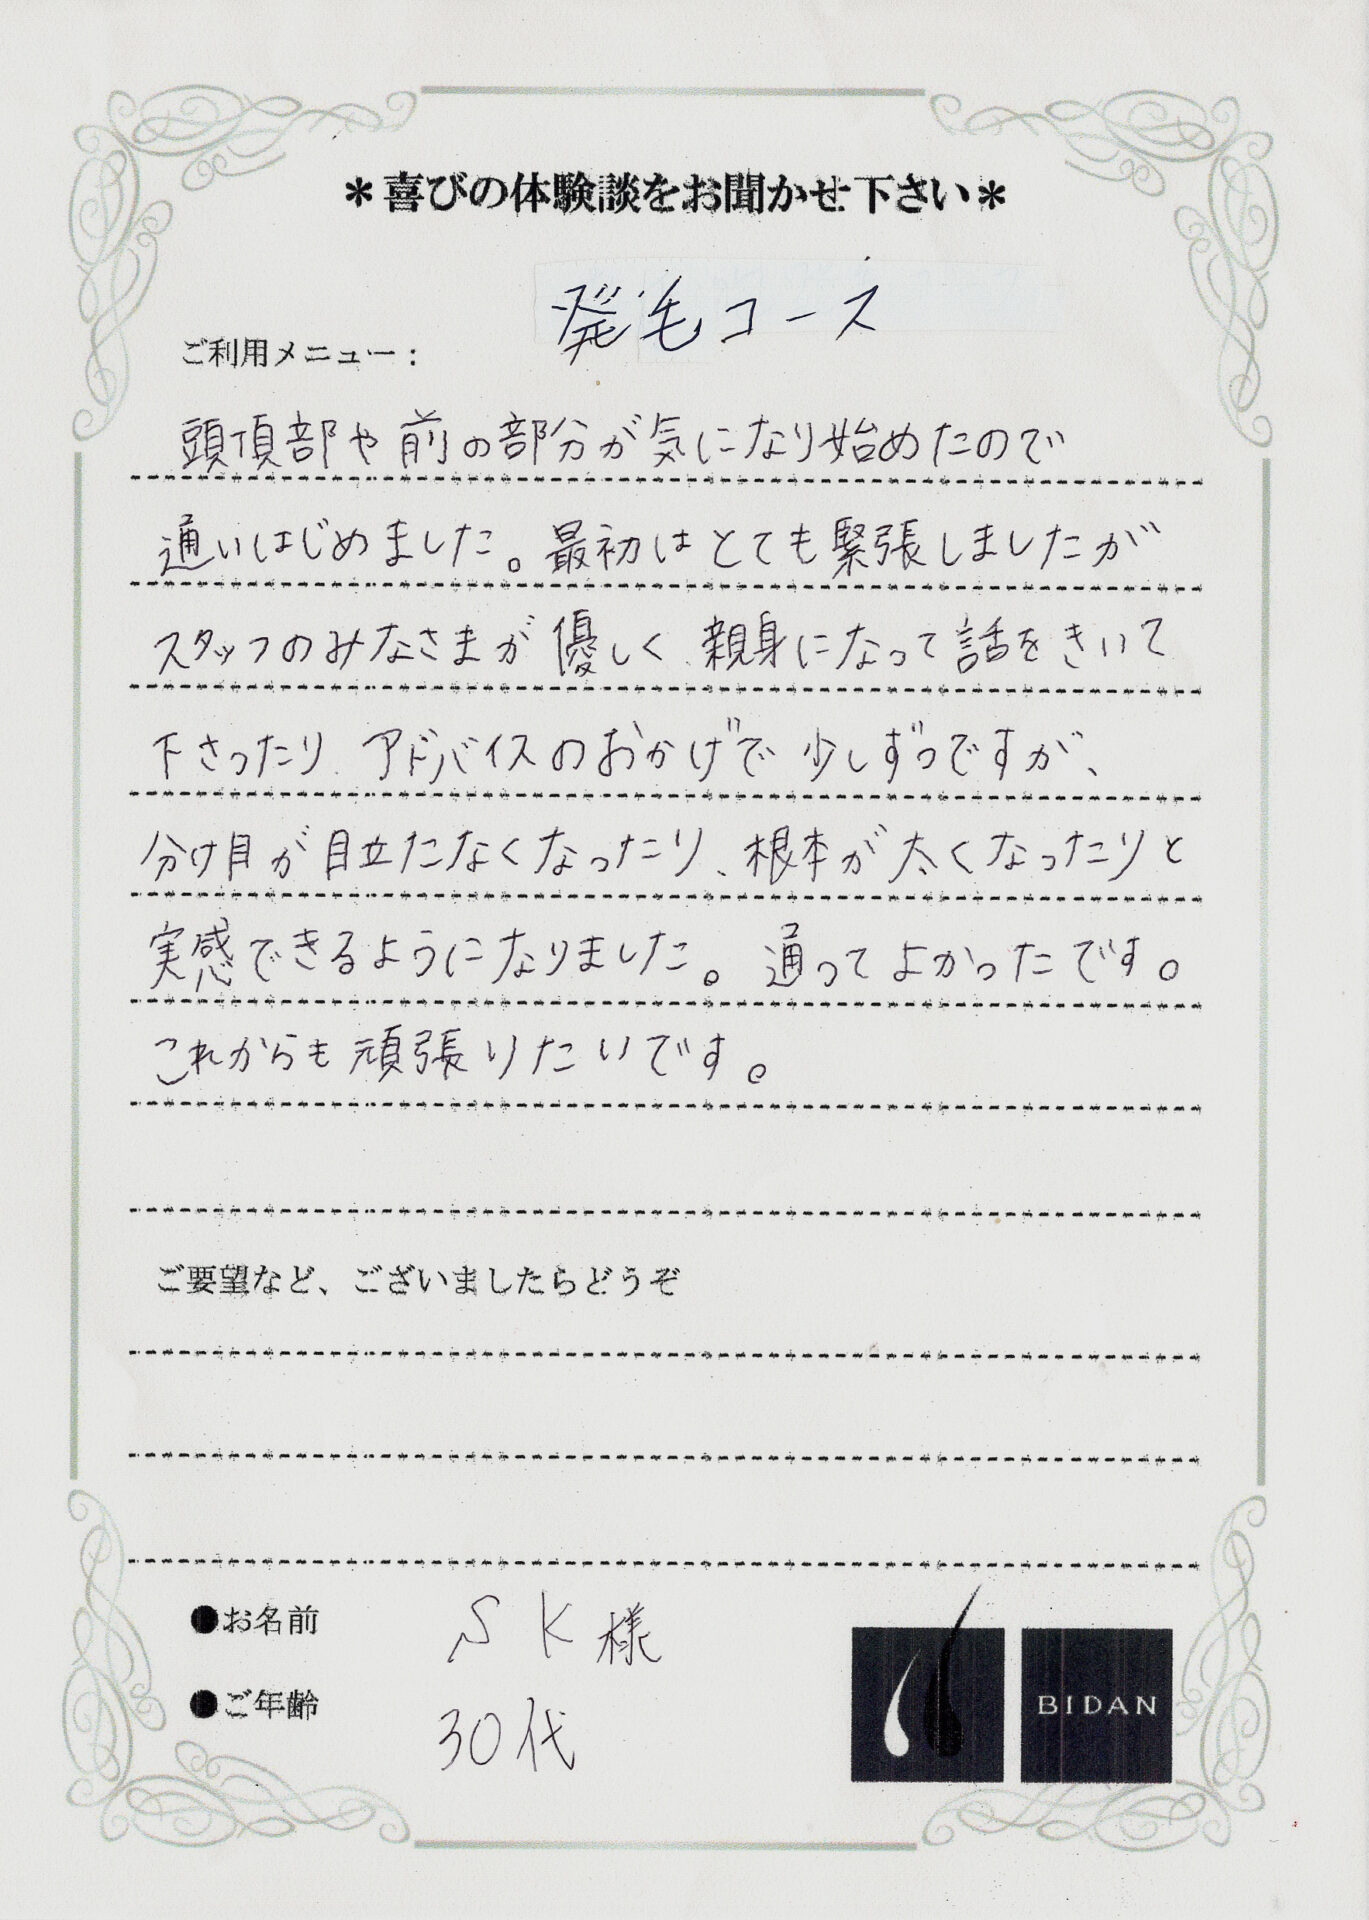 ＊喜びの体験談をお聞かせ下さい＊
ご利用メニュー： 発毛コース
頭頂部や前の部分が気になり始めたので
通いはじめました。最初はとても緊張しましたが
スタッフのみなさまが優しく、親身になって話をきいて
下さったり、アドバイスのおかげで少しずつですが、
分け目が目立たなくなったり、根本が太くなったりと
実感できるようになりました。通ってよかったです。
これからも頑張りたいです。
ご要望など、ございましたらどうぞ
●お名前 SK様
●ご年齢 30代
BIDAN